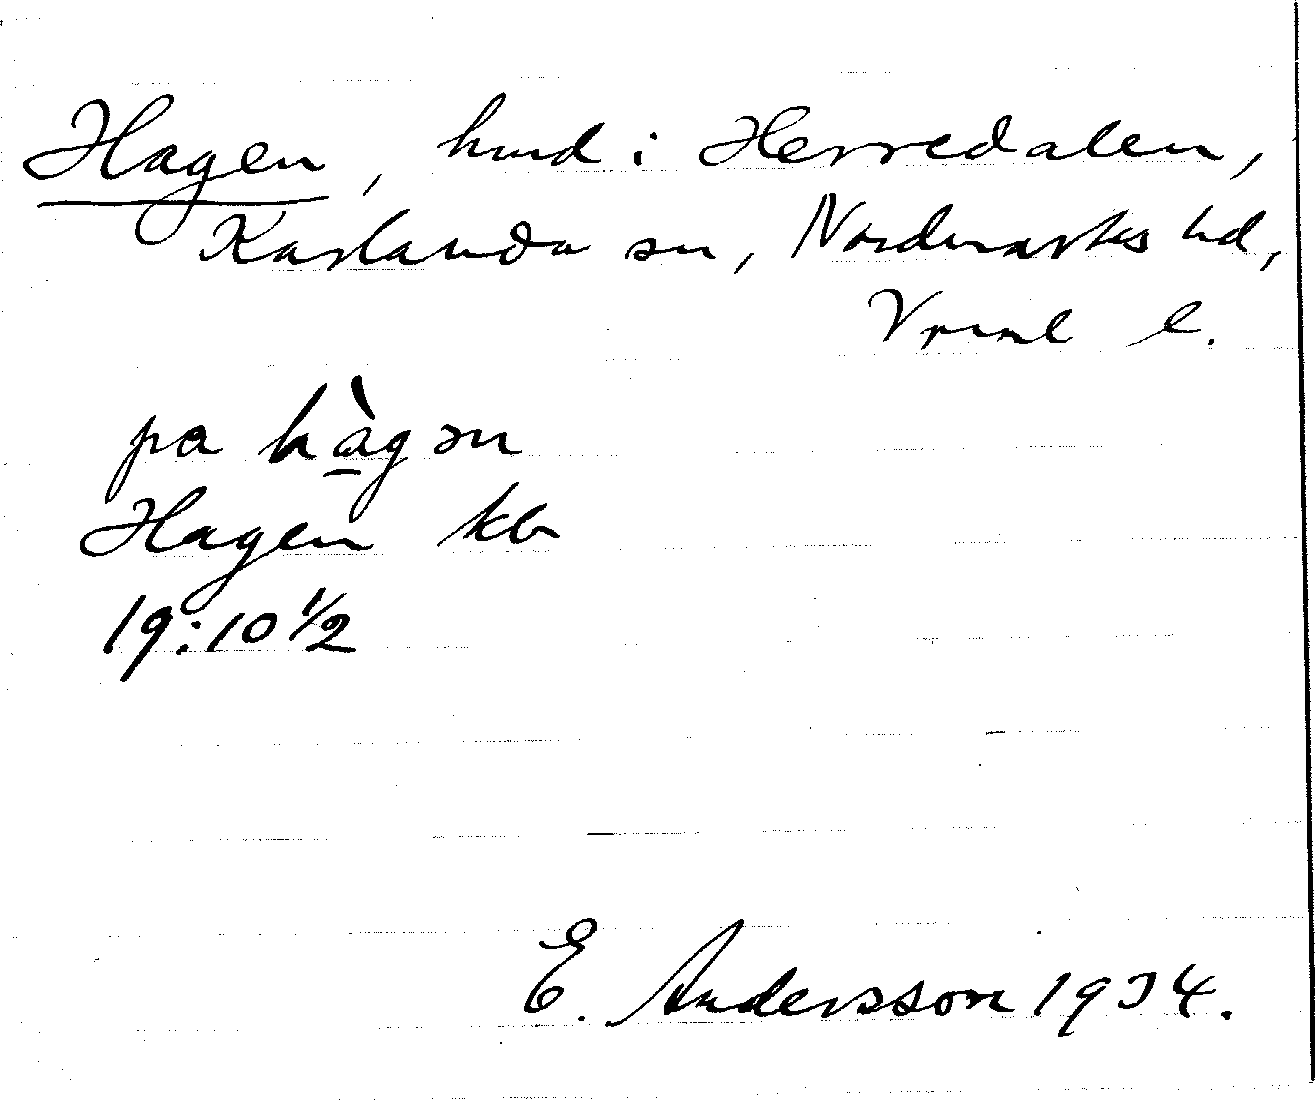 Hagen, hmd i Herredalen,
Karlanda sn, Nordmarks hd,
Vrml l.
pa hàgən
Hagen kb
19:10 1/2
E. Andersson 1934.